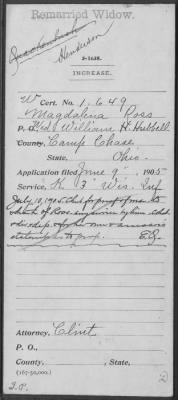 Remarried Widow.
Quackenbush
Henderson
3-1638.
INCREASE.
W Cert. No. 1,649
Magdalena Ross
P. O., Wid William H. Hubbell
County, Camp Chase
State, Ohio.
Application filed June 9, 1905
Service, K 3" Wis. Inf
July 10, 1905. Clt for proof of
death of
E.G.
Attorney, Clmt
P. O.,
County, , State,
(167-50,000.)
2